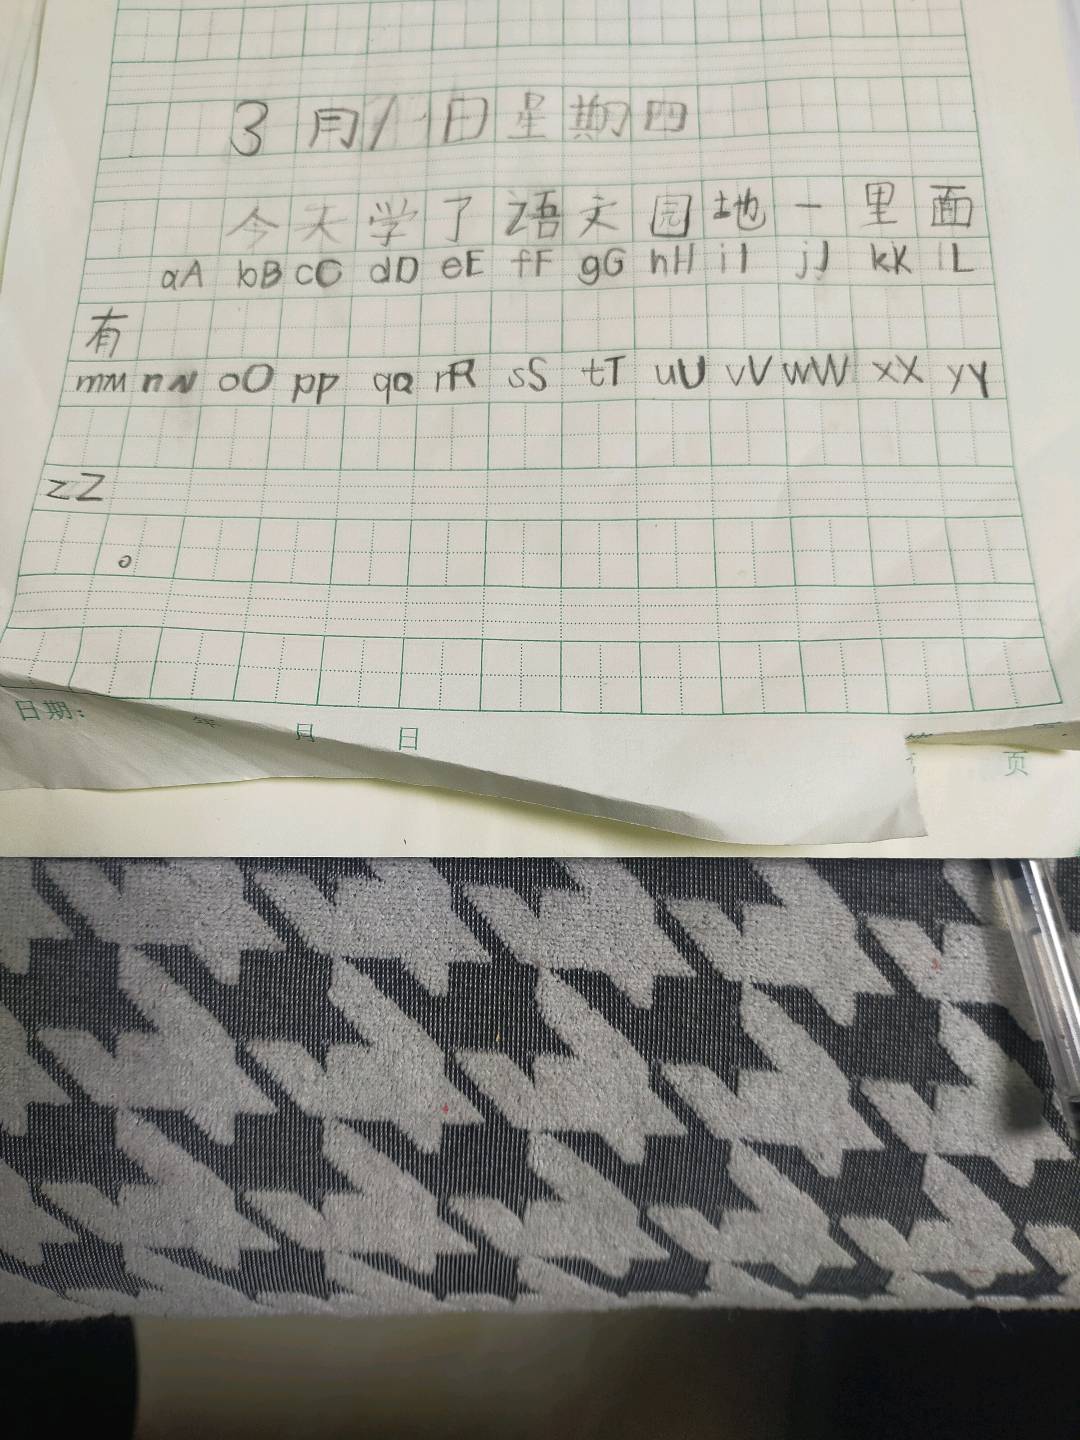 3月1日星期四
今天学了语文园地一里面
aA bB cC dD eE fF gG hH iI jJ kK lL
有
mM nN oO pP qQ rR sS tT uU vV wW xX yY
zZ
。
日期: 年 月 日
页